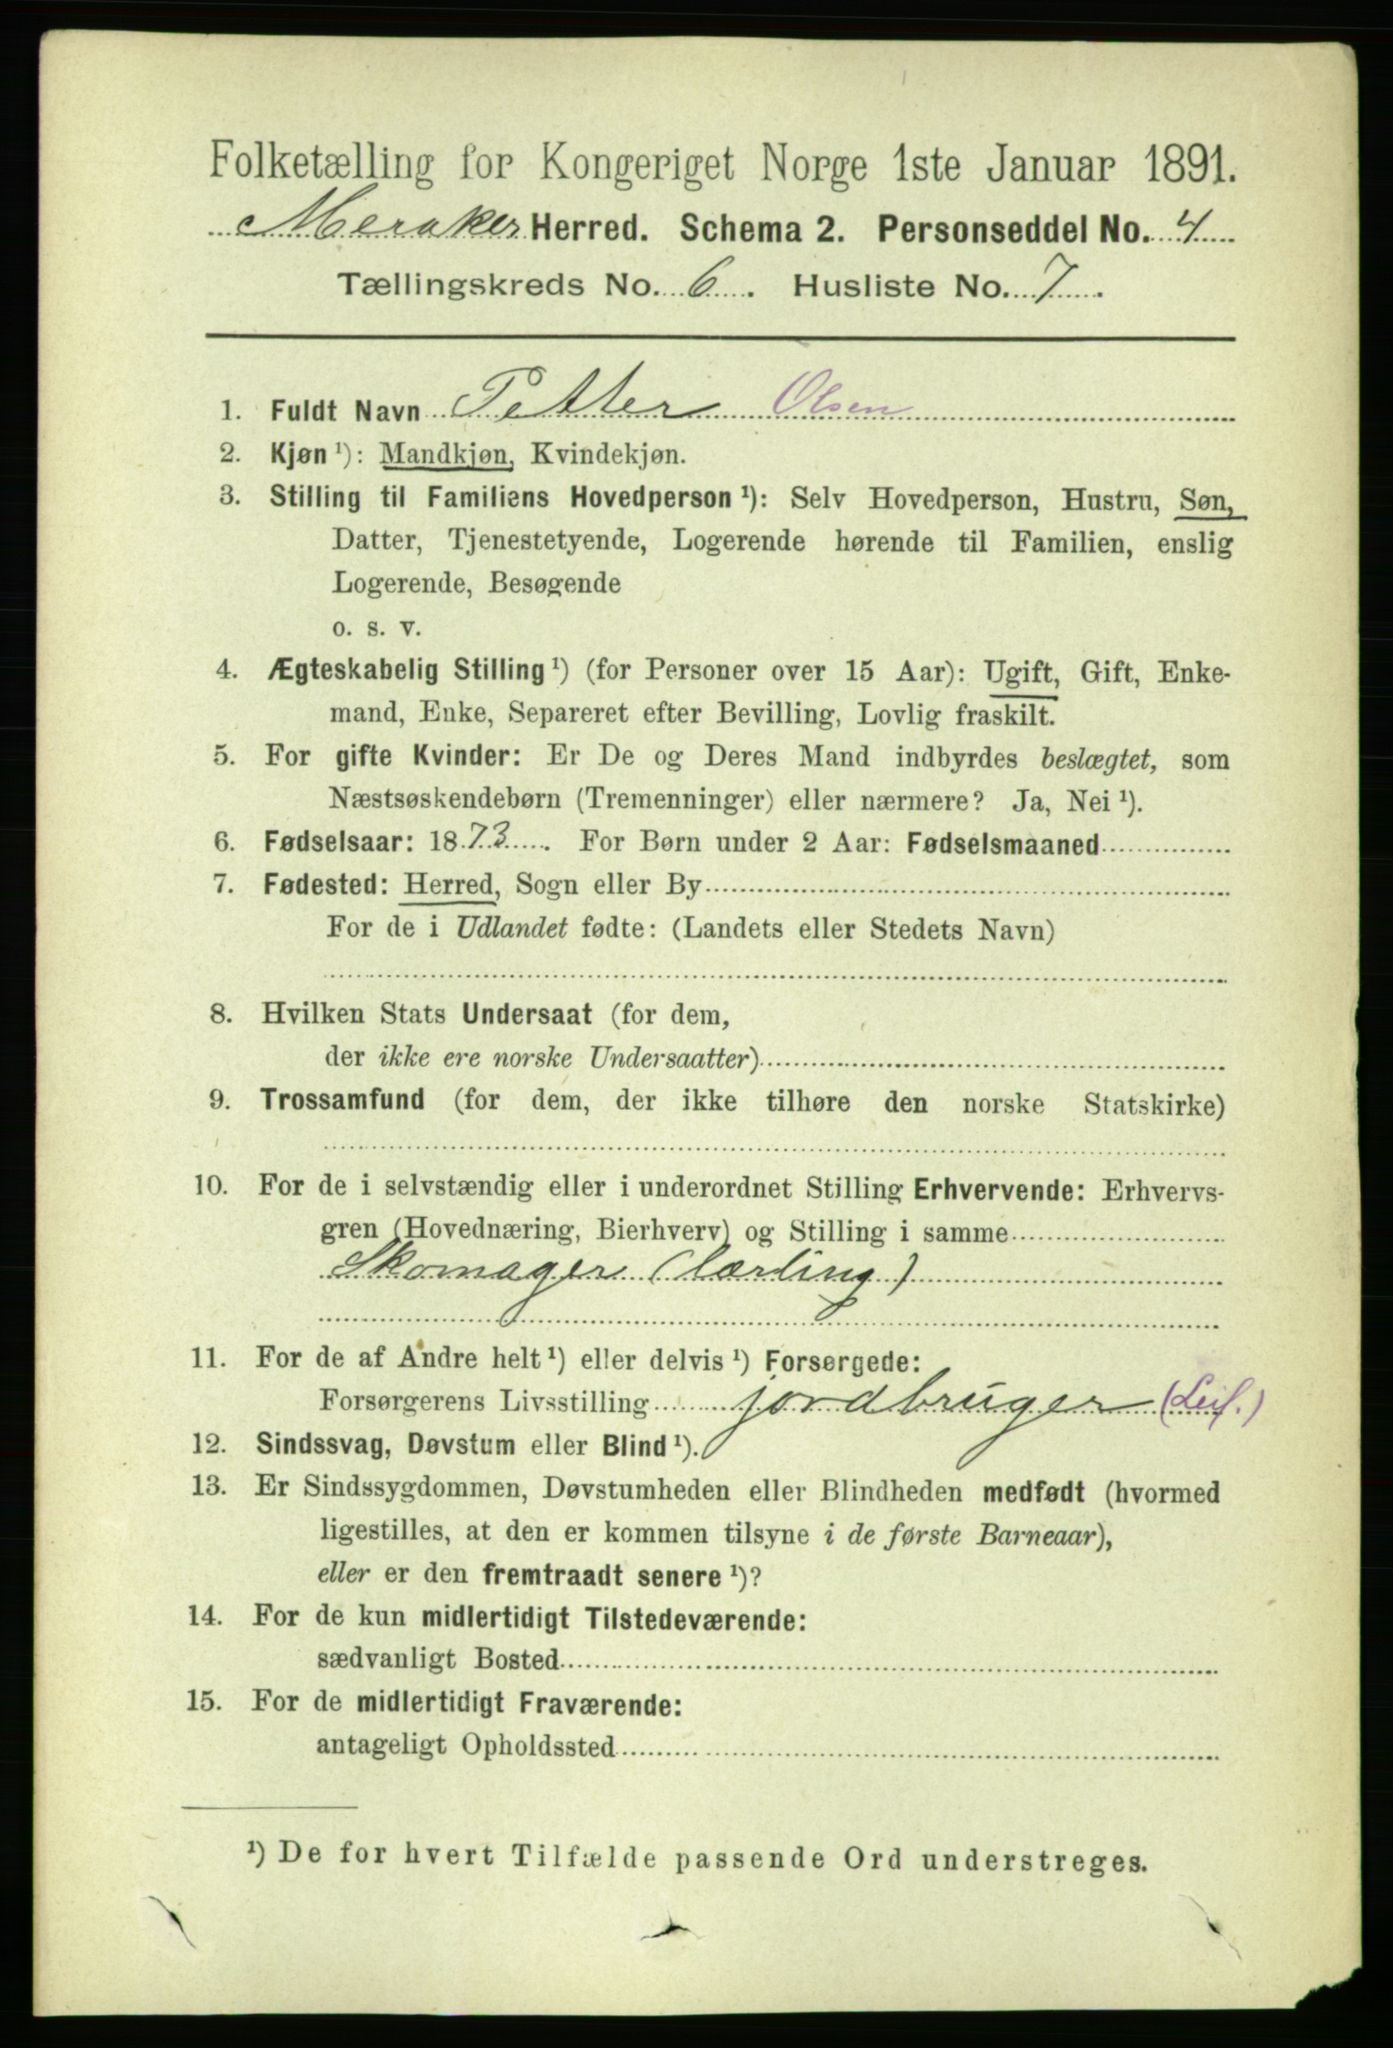 Folketælling for Kongeriget Norge 1ste Januar 1891.
Meraker Herred. Schema 2. Personseddel No. 4
Tællingskreds No. 6. Husliste No. 7.
1. Fuldt Navn Petter Olsen
2. Kjøn ¹): Mandkjøn, Kvindekjøn.
3. Stilling til Familiens Hovedperson ¹): Selv Hovedperson, Hustru, Søn,
Datter, Tjenestetyende, Logerende hørende til Familien, enslig
Logerende, Besøgende
o. s. v.
4. Ægteskabelig Stilling ¹) (for Personer over 15 Aar): Ugift, Gift, Enke-
mand, Enke, Separeret efter Bevilling, Lovlig fraskilt.
5. For gifte Kvinder: Er De og Deres Mand indbyrdes beslægtet, som
Næstsøskendebørn (Tremenninger) eller nærmere? Ja, Nei ¹).
6. Fødselsaar: 1873. For Børn under 2 Aar: Fødselsmaaned
7. Fødested: Herred, Sogn eller By
For de i Udlandet fødte: (Landets eller Stedets Navn)
8. Hvilken Stats Undersaat (for dem,
der ikke ere norske Undersaatter)
9. Trossamfund (for dem, der ikke tilhøre den norske Statskirke)
10. For de i selvstændig eller i underordnet Stilling Erhvervende: Erhvervs-
gren (Hovednæring, Bierhverv) og Stilling i samme
Skomager (lærling)
11. For de af Andre helt ¹) eller delvis ¹) Forsørgede:
Forsørgerens Livsstilling jordbruger (Leil.)
12. Sindssvag, Døvstum eller Blind ¹).
13. Er Sindssygdommen, Døvstumheden eller Blindheden medfødt (hvormed
ligestilles, at den er kommen tilsyne i de første Barneaar),
eller er den fremtraadt senere ¹)?
14. For de kun midlertidigt Tilstedeværende:
sædvanligt Bosted
15. For de midlertidigt Fraværende:
antageligt Opholdssted
¹) De for hvert Tilfælde passende Ord understreges.